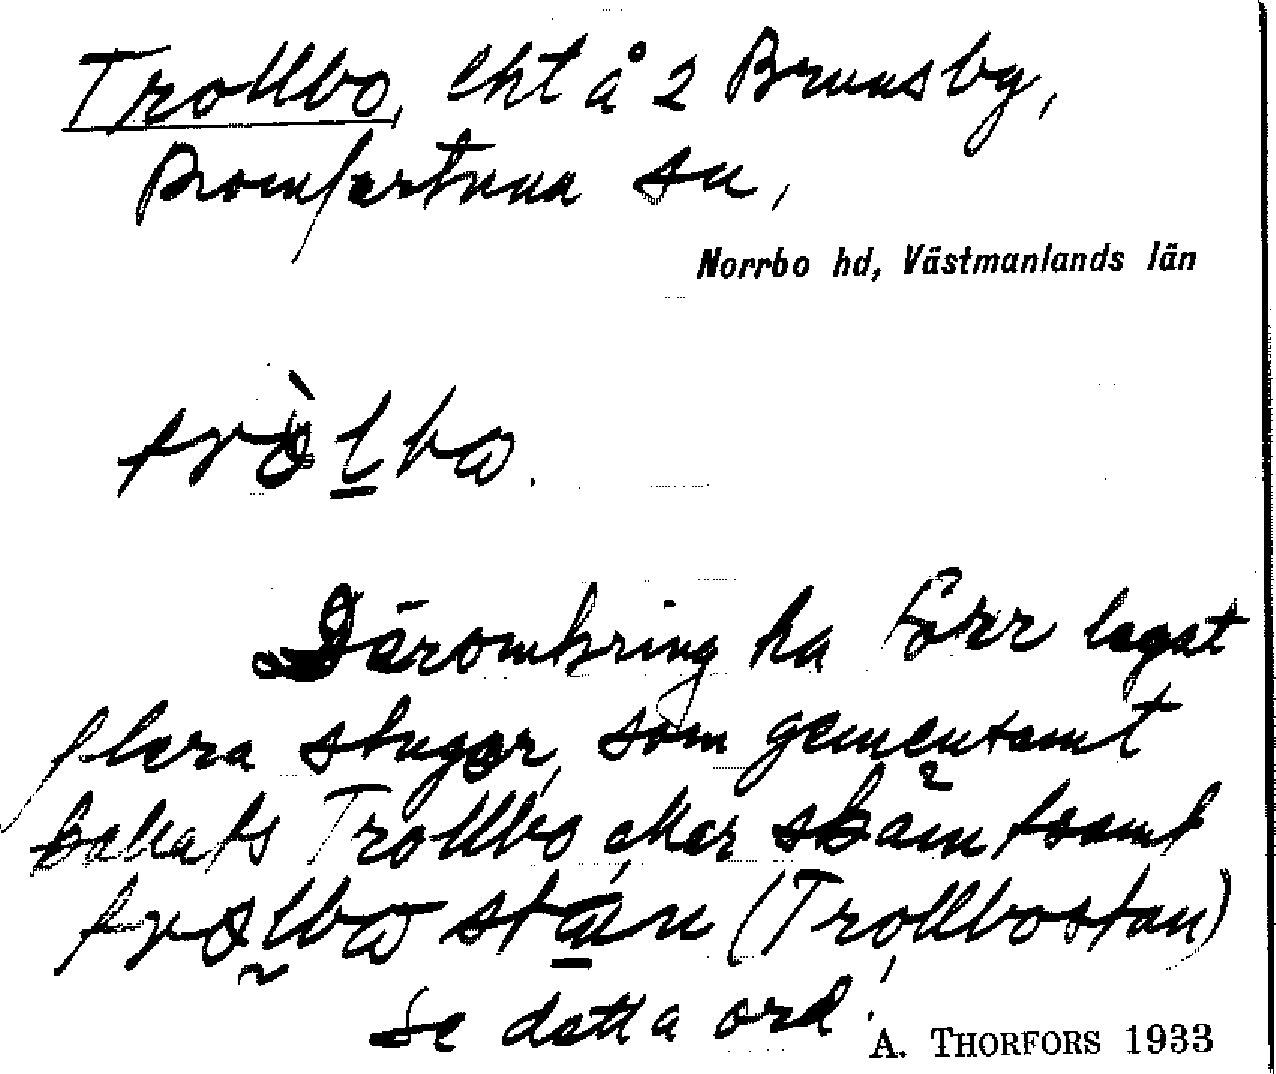 Trollbo, lht å 2 Brunsby,
Romfartuna sn,
Norrbo hd, Västmanlands län
tròlbω.
Däromkring ha förr legat
flera stugor, som gemensamt
kallats Trollbo, eller skämtsamt
trolbω stan (Trollbostan)
se detta ord.
A. THORFORS 1933